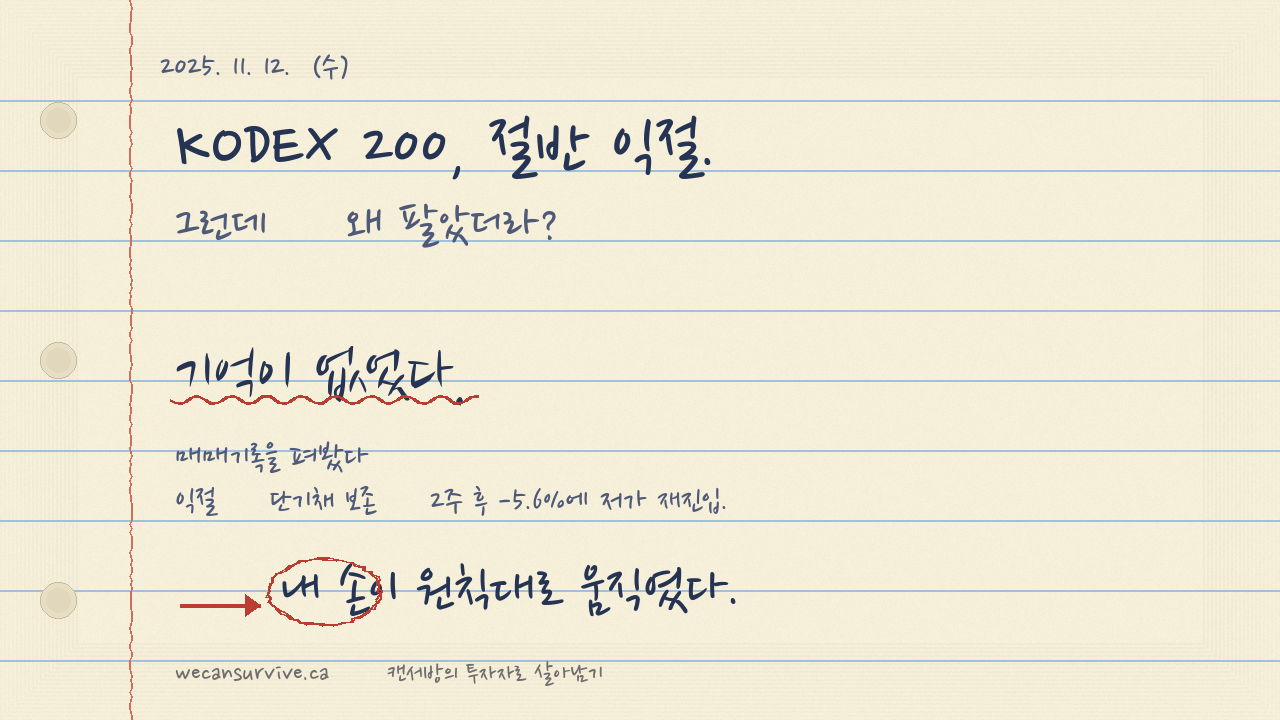 2025. 11. 12. (수)
KODEX 200, 절반 익절.
그런데 왜 팔았더라?
기억이 없었다.
매매기록을 펴봤다
익절 단기채 보존 2주 후 -5.6%에 저가 재진입.
내 손이 원칙대로 움직였다.
wecansurvive.ca 캔세방의 투자자로 살아남기